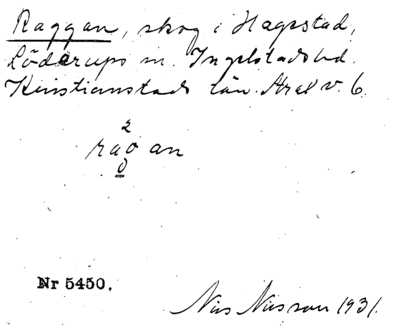 Raggan, skog i Hagestad,
Löderups sn. Ingelstads hd.
Kristianstads län. Areal v. 6.
Nr 5450.
Nils Nilsson 1931.